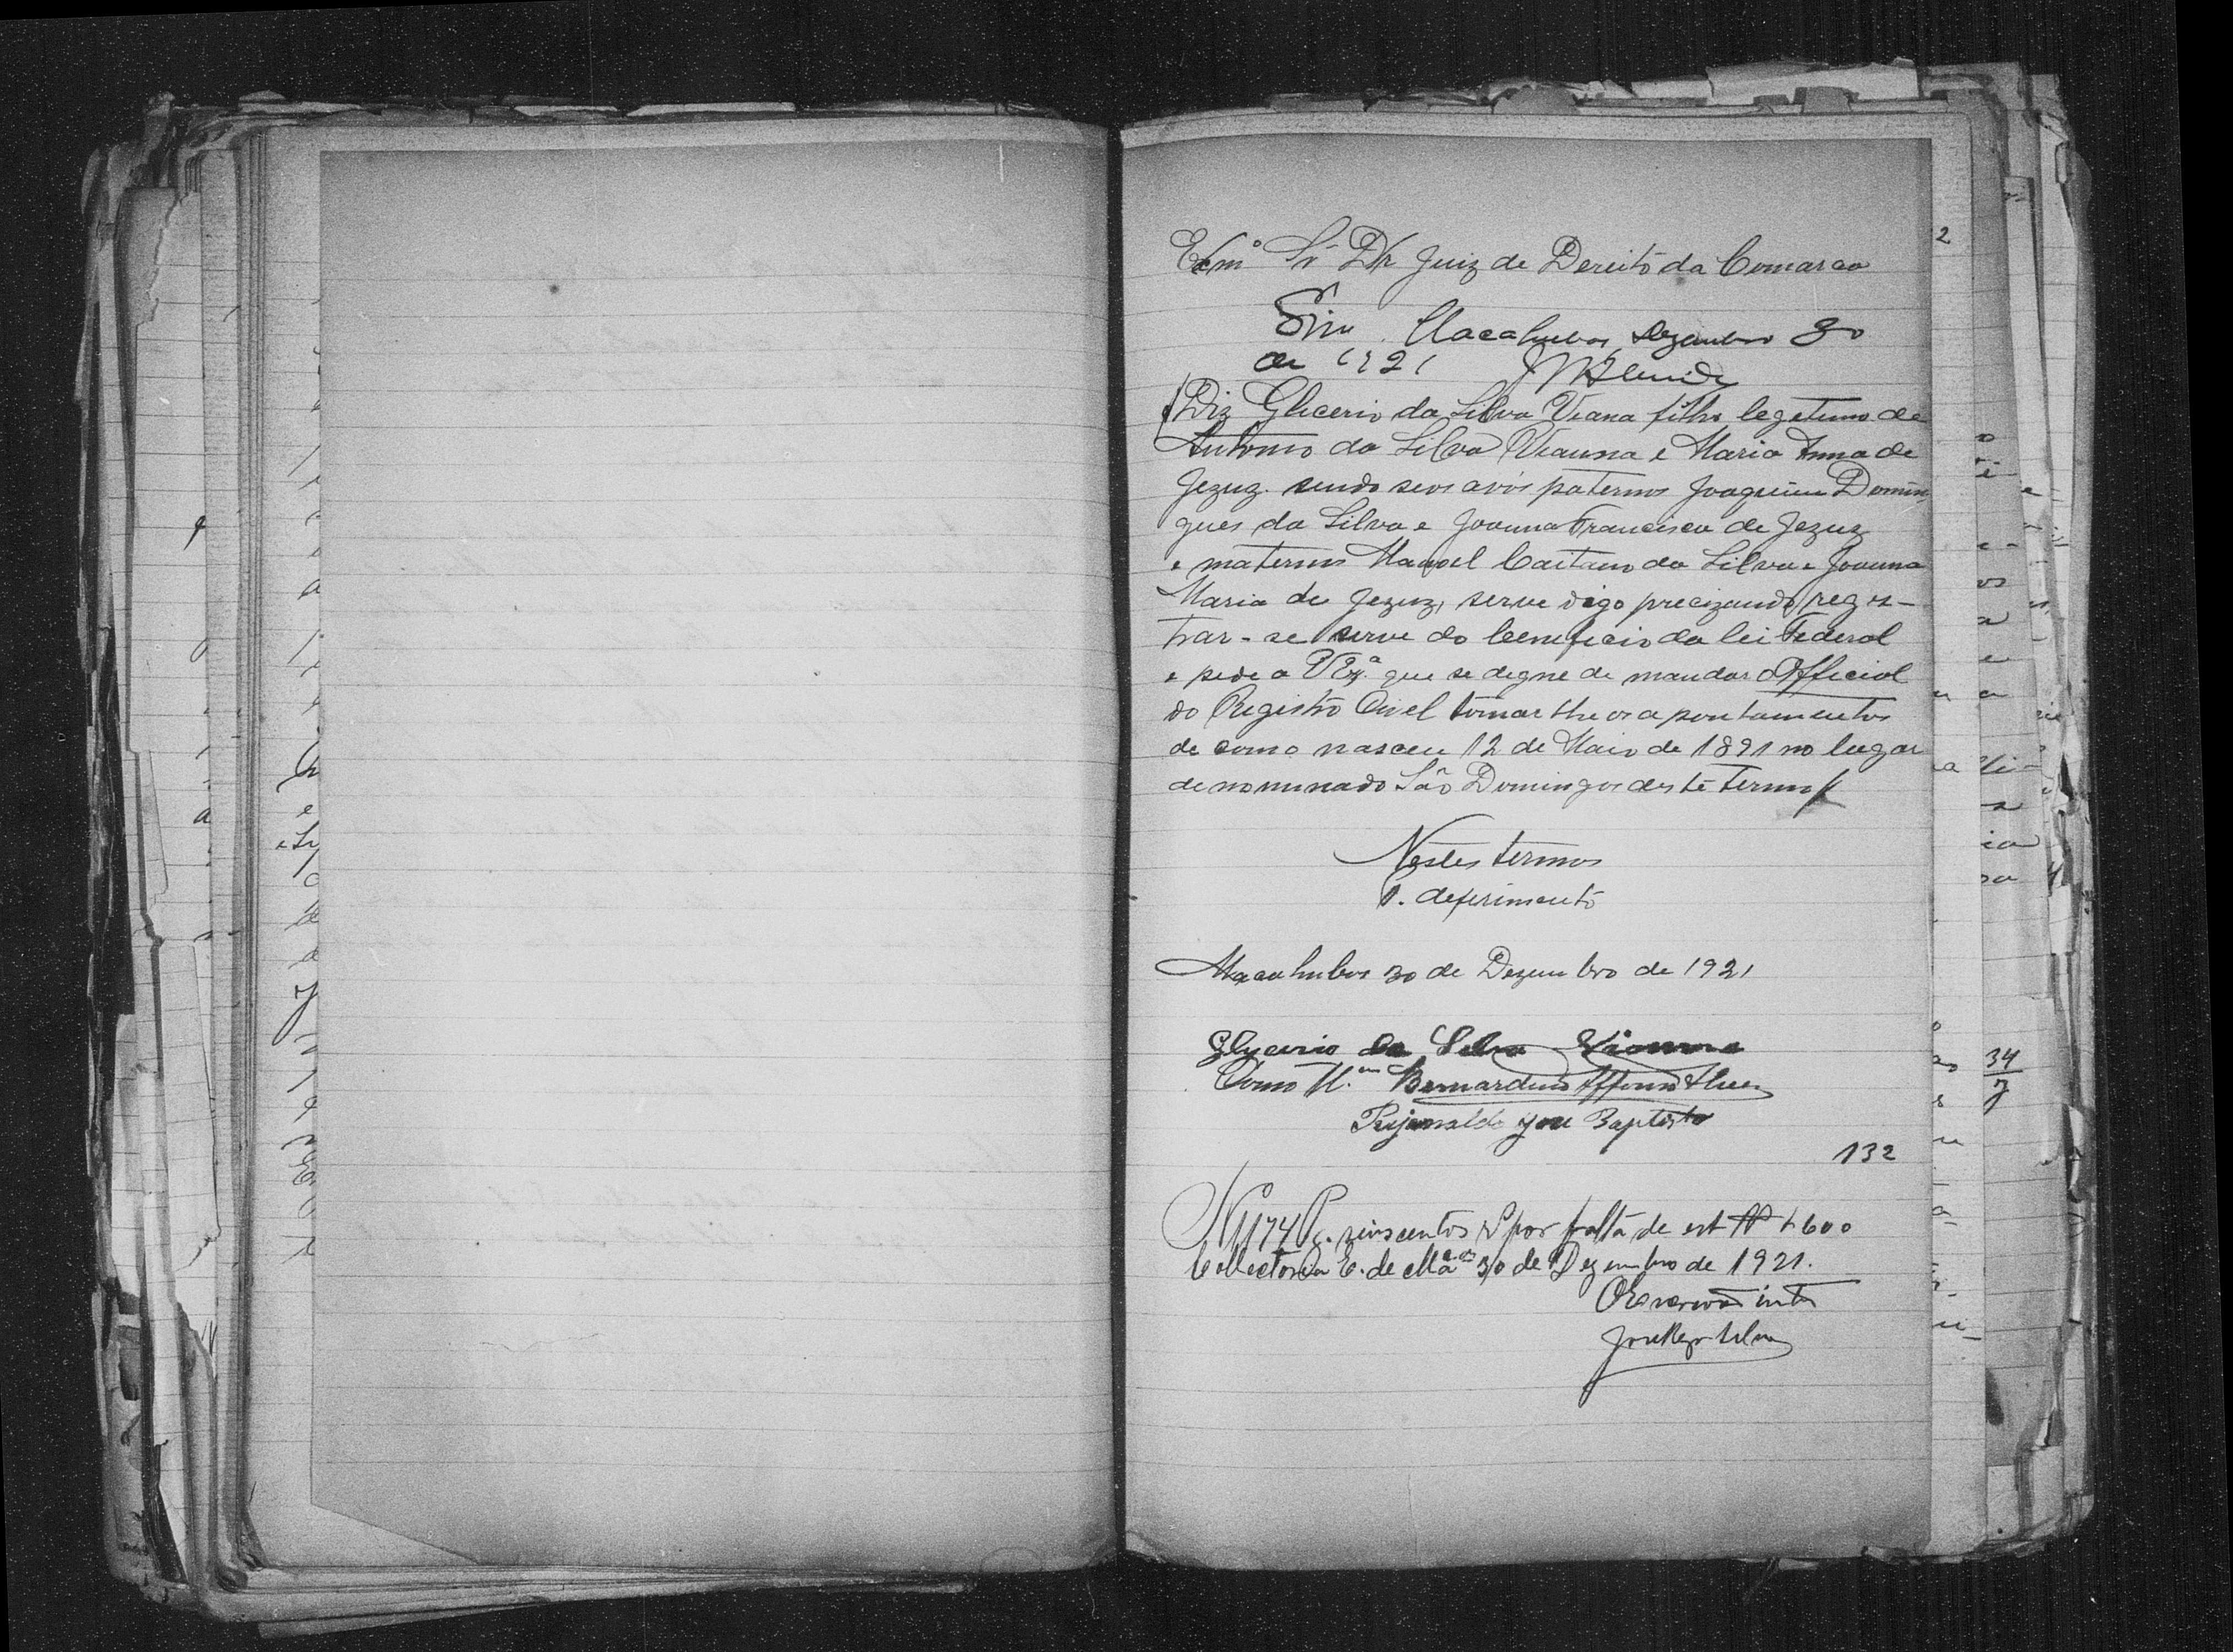 Exmº Sr Dr Juiz de Dereito da Comarca
Sim. Macahubas, Dezembro 30
de 1921
Diz Glicerio da Silva Viana filho legetimo de
Antonio da Silva Vianna e Maria Anna de
Jezuz. sendo seos avós paternos Joaquim Domin-
gues da Silva e Joanna Francisca de Jezuz
e maternos Manoel Caitano da Silva e Joanna
Maria de Jezuz, serve digo precizando regis-
trar-se serve do beneficio da lei Federal
e pede a V Exª que se degne de mandar o Official
do Registro Civel tomar lhe os apontamentos
de como nasceu 12 de Maio de 1891 no lugar
denominado São Domingos deste termo
Nestes termos
P. deferimento
Macahubas 30 de Dezembro de 1921
Glycerio da Silva Vianna
Como T.as Bernardino Affonso
José Baptista
132
N 1174 Pg. seiscentos rs por falta de est 600
Collectoria E. de Macas 30 de Dezembro de 1921.
O Escrivão into
2
34
7